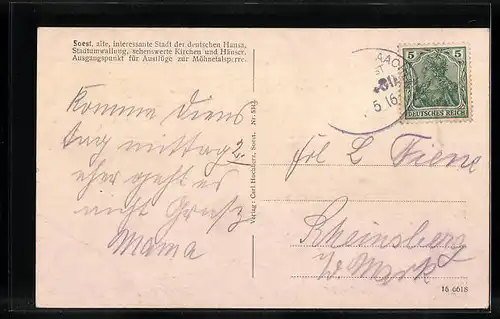 Soest, alte, interessante Stadt der deutschen Hansa,
Stadtumwallung, sehenswerte Kirchen und Häuser.
Ausgangspunkt für Ausflüge zur Möhnetalsperre.
Komme Diens
tag mittag 2
eher geht es
nicht Gruß
Mama
Verlag: Carl Hochherz, Soest. Nr.
5 5
DEUTSCHES REICH
5.16.
Frl L Tiene
Rheinsberg
i/d. Mark
16 6618